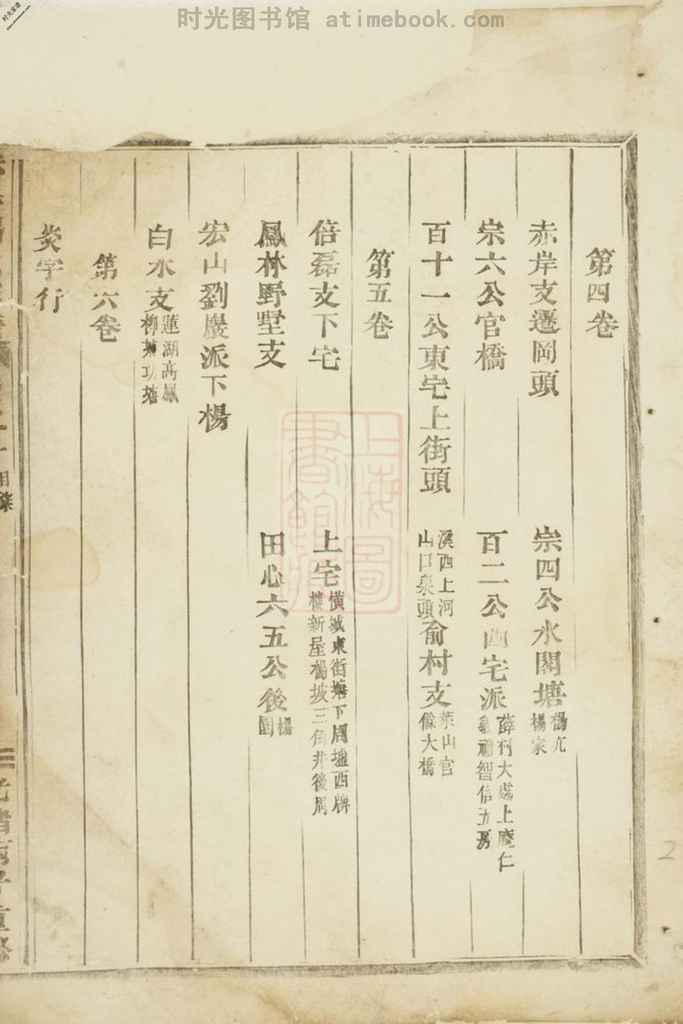 时光图书馆 atimebook.com
第四卷
赤岸支遷岡頭 宗四公水閣塘 楊亢 楊家
宗六公官橋 百二公西宅派 薛村大處上庵仁 義禮智信五房
百十一公東宅上街頭 溪西上河 山口泉頭 俞村支 葉山官 像大橋
第五卷
倍磊支下宅 上宅 橫城東街塘下周墟西牌 樓新屋楊坡三角井後周
鳳林野墅支 田心六五公後 楊 園
宏山劉巖派下楊
白水支 蓮湖高鳳 柳塘功塘
第六卷
炎字行
目錄
光緒 重修
上海圖書館藏